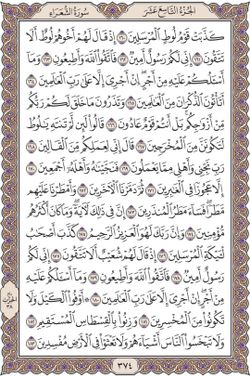 الجزء التاسع عشر سورة الشعراء
كَذَّبَتْ قَوْمُ لُوطٍ الْمُرْسَلِينَ ١٦٠ إِذْ قَالَ لَهُمْ أَخُوهُمْ لُوطٌ أَلَا
تَتَّقُونَ ١٦١ إِنِّي لَكُمْ رَسُولٌ أَمِينٌ ١٦٢ فَاتَّقُوا اللَّهَ وَأَطِيعُونِ ١٦٣ وَمَا
أَسْـَٔلُكُمْ عَلَيْهِ مِنْ أَجْرٍ إِنْ أَجْرِيَ إِلَّا عَلَىٰ رَبِّ الْعَٰلَمِينَ ١٦٤
أَتَأْتُونَ الذُّكْرَانَ مِنَ الْعَٰلَمِينَ ١٦٥ وَتَذَرُونَ مَا خَلَقَ لَكُمْ رَبُّكُمْ
مِنْ أَزْوَٰجِكُمْ بَلْ أَنْتُمْ قَوْمٌ عَادُونَ ١٦٦ قَالُوا لَئِنْ لَمْ تَنْتَهِ يَٰلُوطُ
لَتَكُونَنَّ مِنَ الْمُخْرَجِينَ ١٦٧ قَالَ إِنِّي لِعَمَلِكُمْ مِنَ الْقَالِينَ ١٦٨
رَبِّ نَجِّنِي وَأَهْلِي مِمَّا يَعْمَلُونَ ١٦٩ فَنَجَّيْنَٰهُ وَأَهْلَهُ أَجْمَعِينَ ١٧٠
إِلَّا عَجُوزًا فِي الْغَٰبِرِينَ ١٧١ ثُمَّ دَمَّرْنَا الْآخَرِينَ ١٧٢ وَأَمْطَرْنَا عَلَيْهِمْ
مَطَرًا فَسَاءَ مَطَرُ الْمُنْذَرِينَ ١٧٣ إِنَّ فِي ذَٰلِكَ لَآيَةً وَمَا كَانَ أَكْثَرُهُمْ
مُؤْمِنِينَ ١٧٤ وَإِنَّ رَبَّكَ لَهُوَ الْعَزِيزُ الرَّحِيمُ ١٧٥ كَذَّبَ أَصْحَٰبُ
لْـَٔيْكَةِ الْمُرْسَلِينَ ١٧٦ إِذْ قَالَ لَهُمْ شُعَيْبٌ أَلَا تَتَّقُونَ ١٧٧ إِنِّي لَكُمْ
رَسُولٌ أَمِينٌ ١٧٨ فَاتَّقُوا اللَّهَ وَأَطِيعُونِ ١٧٩ وَمَا أَسْـَٔلُكُمْ عَلَيْهِ
مِنْ أَجْرٍ إِنْ أَجْرِيَ إِلَّا عَلَىٰ رَبِّ الْعَٰلَمِينَ ١٨٠ أَوْفُوا الْكَيْلَ وَلَا
تَكُونُوا مِنَ الْمُخْسِرِينَ ١٨١ وَزِنُوا بِالْقِسْطَاسِ الْمُسْتَقِيمِ ١٨٢
وَلَا تَبْخَسُوا النَّاسَ أَشْيَاءَهُمْ وَلَا تَعْثَوْا فِي الْأَرْضِ مُفْسِدِينَ ١٨٣
٣٧٤